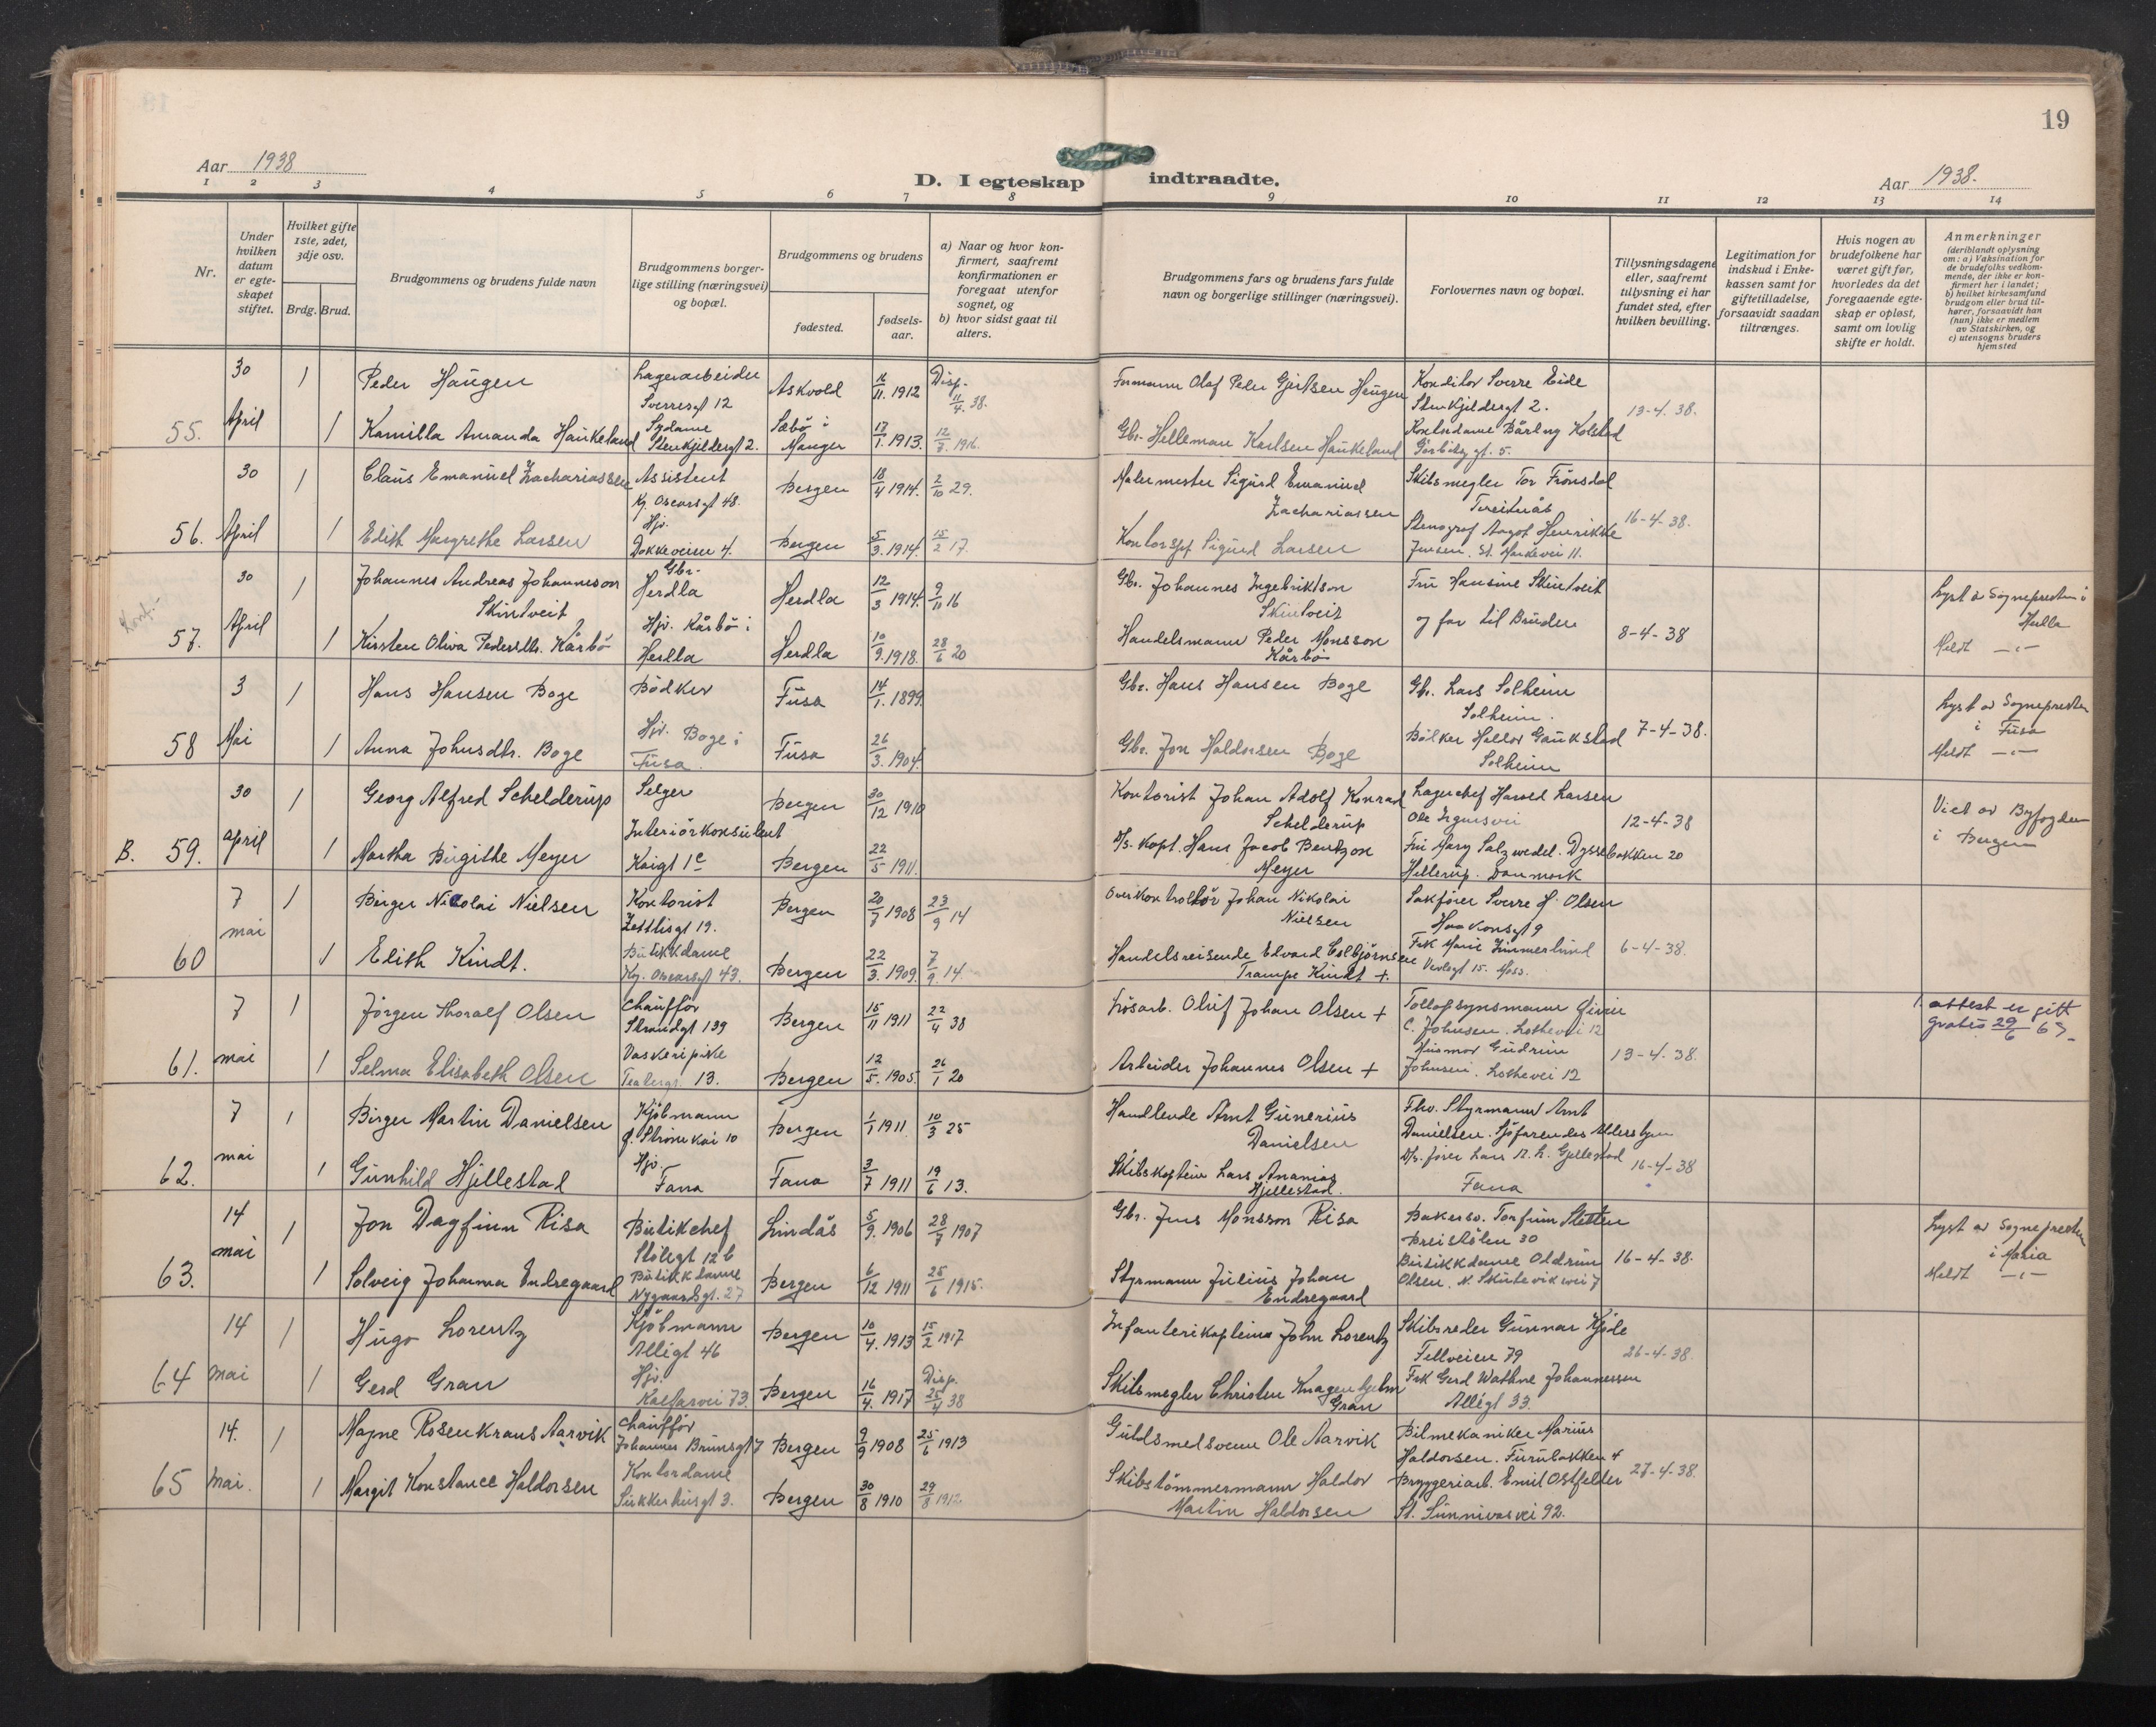 19
Aar 1938
D. I egteskap indtraadte.
Aar 1938.
1 2 3 4 5 6 7 8 9 10 11 12 13 14
Nr.
Under hvilken datum er egteskapet stiftet.
Hvilket gifte 1ste, 2det, 3dje osv.
Brdg. Brud.
Brudgommens og brudens fulde navn
Brudgommens borgerlige stilling (næringsvei) og bopæl.
Brudgommens og brudens
fødested.
fødselsaar.
a) Naar og hvor konfirmert, saafremt konfirmationen er foregaat utenfor sognet, og
b) hvor sidst gaat til alters.
Brudgommens fars og brudens fars fulde navn og borgerlige stillinger (næringsvei).
Forlovernes navn og bopæl.
Tillysningsdagene eller, saafremt tillysning ei har fundet sted, efter hvilken bevilling.
Legitimation for indskud i Enkekassen samt for giftetilladelse, forsaavidt saadan tiltrænges.
Hvis nogen av brudefolkene har været gift før, hvorledes da det foregaaende egteskap er opløst, samt om lovlig skifte er holdt.
Anmerkninger (deriblandt oplysning om: a) Vaksination for de brudefolks vedkommende, der ikke er konfirmert her i landet; b) hvilket kirkesamfund brudgom eller brud tilhører, forsaavidt han (hun) ikke er medlem av Statskirken, og c) utensogns bruders hjemsted
55. 30 April
1 Peder Haugen Lagerarbeider Sverresgt 12 Askvold 16/11. 1912 Disp. 11/4. 38. Formann Olaf Peder Gjertsen Haugen Konditor Sverre Eide Stenkjeldergt 2.
1 Kamilla Amanda Haukeland Sydame Stenkjeldergt 2. Sæbö i Manger 17/1. 1913. Gbr. Helleman Karlsen Haukeland Kontordame Kolstad 13-4. 38.
56. 30 April
1 Claus Emanuel Zachariassen Assistent Kg. Oscarsgt 48. Bergen 18/4 1914. 2/10 29. Malermester Sigurd Emanuel Zachariassen Skibsmegler Tor Frönsdal
1 Edith Margrethe Larsen Hjv. Dokkeveien 4. Bergen 5/3. 1914. 15/2 17. Sigurd Larsen Stenograf Aagot Henrikke Jensen. St. Markevei 11. 16-4-38.
Konf.-
57. 30 April
1 Johannes Andreas Johannesson Skintveit Gbr. Herdla Herdla 12/3 1914. 9/11 16 Gbr. Johannes Ingebriktson Skintveit Fru Hansine Skintveit
1 Kirsten Oliva Pedersdtr. Kårbö Hjv. Kårbö i Herdla Herdla 10/9. 1918. 28/6 20 Handelsmann Peder Monsson Kårbö og far til Bruden 8-4-38
Lyst av Sognepresten i
Meldt -"-
58 3 Mai
1 Hans Hansen Boge Bödker Fusa 14/1. 1899. Gbr. Hans Hansen Boge Gbr. Lars Solheim Solheim.
1 Anna Johnsdtr. Boge Hjv. Boge i Fusa. Fusa 26/3. 1904. Gbr. Jon Haldorsen Boge Bödker Haldor Gaukstad Solheim 7-4-38.
Lyst av Sognepresten i Fusa
Meldt -"-
B. 59. 30 april
1 Georg Alfred Schelderup Selger Bergen 30/12 1910 Kontorist Johan Adolf Konrad Schelderup Lagerchef Harold Larsen Ole Irgensvei
1 Martha Birgithe Meyer Interiörkonsulent Kaigt 1c Bergen 22/5 1911. D/s. kapt. Hans Jacob Bentzon Meyer Fru Mary Salzwedel. Dyssebakken 20 Hellerup. Danmark 12-4-38
Viet av Byfogden i Bergen
60 7 mai
1 Birger Nicolai Nielsen Kontorist Zetlitzgt 19. Bergen 20/7 1908 23/9 14 Overkontrollör Johan Nikolai Nielsen Sakförer Sverre H. Olsen Haakonsgt 9
1 Edith Kindt. Butikkdame Kg. Oscarsgt 43. Bergen 22/3. 1909. 7/9. 14. Handelsreisende Edvard Esbjörnsen Trampe Kindt +. Frk Marie Zimmerlund 15. Moss. 6-4-38.
61. 7 mai
1 Jörgen Thoralf Olsen Chaufför Strandgt 139 Bergen 15/11 1911 22/4 38 Lösarb. Oluf Johan Olsen + Tollopsynsmann Eivin C. Johnsen. Lothevei 12
1 Selma Elisabeth Olsen Vaskeripike Teatergt. 13. Bergen 12/5. 1905. 26/1 20 Arbeider Johannes Olsen + Husmor Gudrun Johnsen. Lothevei 12 13-4-38.
attest er gitt gratis 29/6 67.
62. 7 mai
1 Birger Martin Danielsen Kjöbmann Bergen 1/1 1911 10/3 25 Handlende Arnt Gunerius Danielsen Fhv. Styrmann Arnt Danielsen. Sjöfarendes Aldershjem
1 Gunhild Hjellestad Hjv. Fana Fana 3/7 1911 19/6 13. Skibskaptein Lars Ananias Hjellestad. D/s. förer Lars Gjellestad Fana 16-4-38
63. 14 mai
1 Jon Dagfinn Risa Butikchef Stölegt 12b Lindås 5/9. 1906 28/7 1907 Gbr. Jens Monsson Risa Bakersv. Torfinn Sletten Breistölen 30
1 Solveig Johanna Endregaard Butikkdame Nygaardsgt. 27 Bergen 6/12 1911 25/6 1915. Styrmann Julius Johan Endregaard Butikkdame Oldrun Olsen. N. Skuteviksvei 7 16-4-38.
Lyst av Sognepresten i Maria
Meldt -"-
64 14 mai
1 Hugo Lorentz Kjöbmann Allégt 46 Bergen 10/4. 1913 15/2 1917 Infanterikaptein John Lorentz Skibsreder Gunnar Kjöde Fellveien 79
1 Gerd Gran Hjv. Kalfarvei 73. Bergen 16/4. 1917 Disp. 25/4 38 Skibsmegler Christen Knagenhjelm Gran Frk Gerd Wathne Johannessen Allégt 33. 26-4-38.
65 14. mai.
1 Magne Rosenkrans Aarvik Chaufför Johannes Brunsgt 7 Bergen 9/9 1908 25/6 1913 Guldsmedsvenn Ole Aarvik Bilmekaniker Marius Haldorsen. Furubakken 4
1 Margit Konstance Haldorsen Kontordame Sukkerhusgt 3. Bergen 30/8 1910 29/8 1912. Skibstömmermann Haldor Martin Haldorsen Bryggeriarb. Emil Ostfelder St. Sunnivas vei 92. 27-4-38.